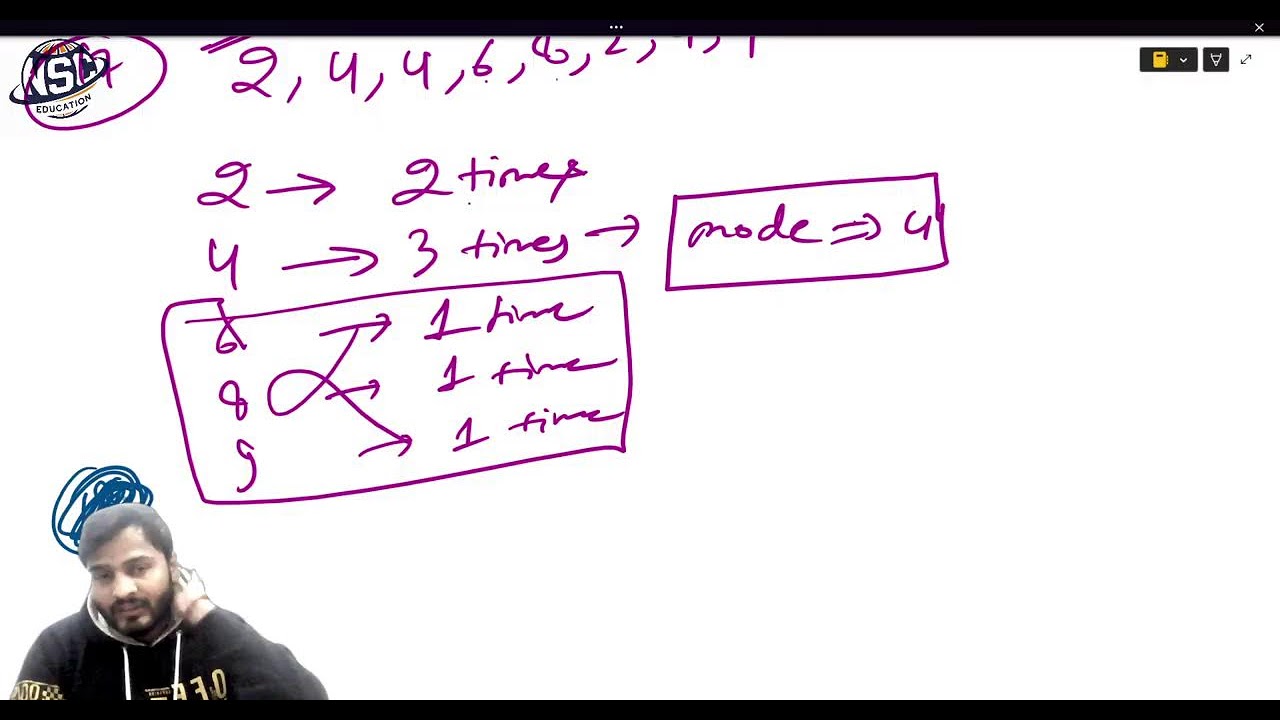 NSC
EDUCATION
2, 4, 4, 6, 8, 2, 4, 9
2 → 2 times
4 → 3 times → mode ⇒ 4
6 → 1 time
8 → 1 time
9 → 1 time